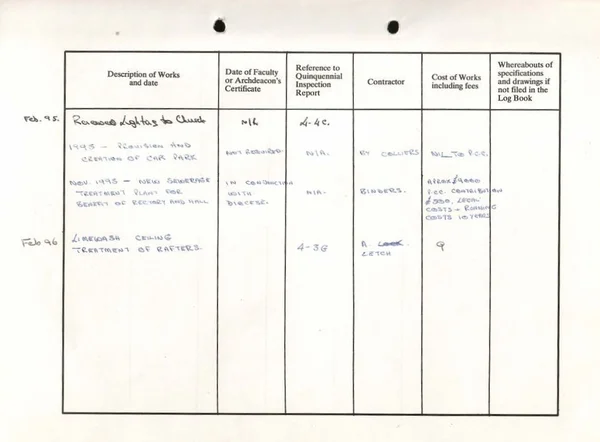 Description of Works
and date
Date of Faculty
or Archdeacon's
Certificate
Reference to
Quinquennial
Inspection
Report
Contractor
Cost of Works
including fees
Whereabouts of
specifications
and drawings if
not filed in the
Log Book
Feb. 95. Renewed Lighting to Church N/A 4-4c.
1995 - PROVISION AND
CREATION OF CAR PARK NOT REQUIRED N/A. BY COLLIERS NIL TO P.C.C.
NOV. 1995 - NEW SEWERAGE
TREATMENT PLANT FOR
BENEFIT OF RECTORY AND HALL
IN CONJUNCTION
WITH
DIOCESE.
N/A.
BINDERS.
APROX £9000
P.C.C. CONTRIBUTION
LEGAL
COSTS + RUNNING
COSTS 10 YEARS
Feb 96 LIMEWASH CEILING
TREATMENT OF RAFTERS. 4-3G A.
LETCH